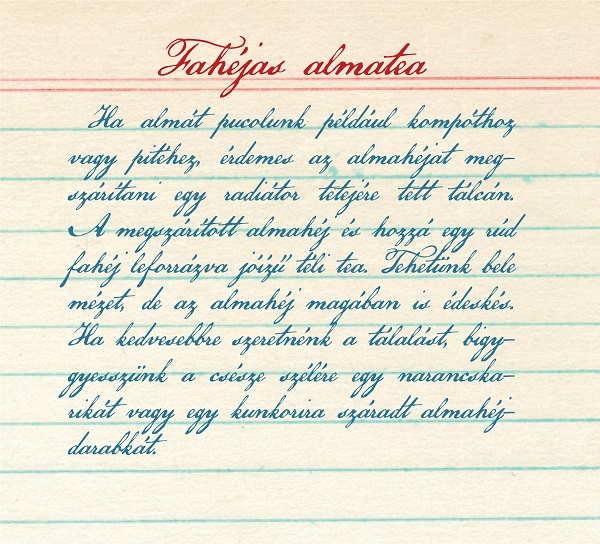 Fahéjas almatea
Ha almát pucolunk például kompóthoz
vagy pitéhez, érdemes az almahéjat meg-
szárítani egy radiátor tetejére tett tálcán.
A megszárított almahéj és hozzá egy rúd
fahéj leforrázva jóízű téli tea. Tehetünk bele
mézet, de az almahéj magában is édeskés.
Ha kedvesebbre szeretnénk a tálalást, bigy-
gyesszünk a csésze szélére egy narancska-
rikát vagy egy kunkorira száradt almahéj-
darabkát.